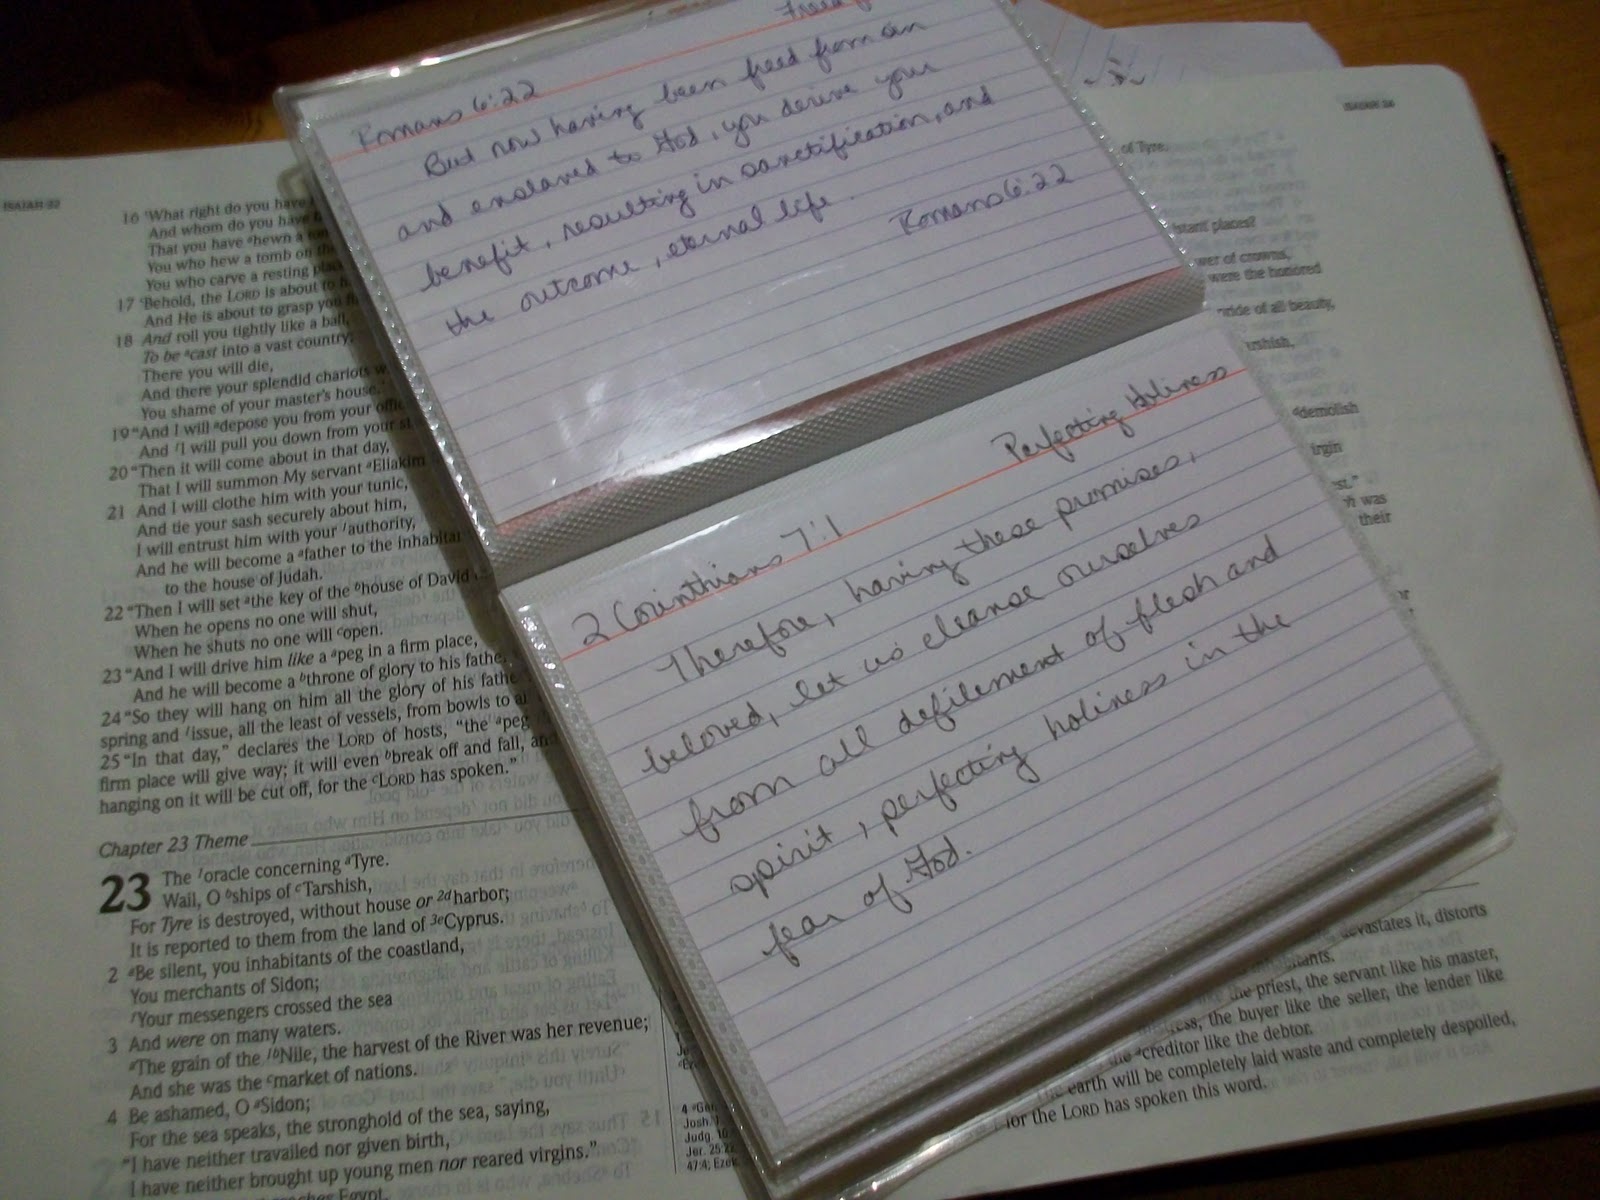 Romans 6:22
But now having been freed from sin
and enslaved to God, you derive your
benefit, resulting in sanctification, and
the outcome, eternal life.
Romans 6:22
2 Corinthians 7:1 Perfecting Holiness
Therefore, having these promises,
beloved, let us cleanse ourselves
from all defilement of flesh and
spirit, perfecting holiness in the
fear of God.
ISAIAH 22
16 'What right do you have
And whom do you have
That you have ᵃhewn a
You who hew a tomb on the
You who carve a resting
17 'Behold, the LORD is about to
And He is about to grasp you
18 And roll you tightly like a ball,
To be ᵃcast into a vast country;
There you will die,
And there your splendid chariots
You shame of your master's house.'
19 "And I will ᵃdepose you from your
And I will pull you down from your
20 "Then it will come about in that day,
That I will summon My servant ᵃEliakim
21 And I will clothe him with your tunic,
And tie your sash securely about him,
I will entrust him with your authority,
And he will become a ᵃfather to the
to the house of Judah.
22 "Then I will set ᵃthe key of the ᵇhouse of David
When he opens no one will shut,
When he shuts no one will ᶜopen.
23 "And I will drive him like a ᵃpeg in a firm place,
And he will become a ᵇthrone of glory to his
24 "So they will hang on him all the glory of his
spring and issue, all the least of vessels, from bowls to
25 "In that day," declares the LORD of hosts, "the ᵃpeg
firm place will give way; it will even ᵇbreak off and fall,
hanging on it will be cut off, for the ᶜLORD has spoken."
Chapter 23 Theme
23 The oracle concerning ᵃTyre.
Wail, O ᵇships of ᶜTarshish,
For Tyre is destroyed, without house or ²ᵈharbor;
It is reported to them from the land of ³ᵉCyprus.
2 ᵃBe silent, you inhabitants of the coastland,
You merchants of Sidon;
Your messengers crossed the sea
3 And were on many waters.
ᵃThe grain of the ¹ᵇNile, the harvest of the River was her revenue;
And she was the ᶜmarket of nations.
4 Be ashamed, O ᵃSidon;
For the sea speaks, the stronghold of the sea, saying,
"I have neither travailed nor given birth,
I have neither brought up young men nor reared virgins."
Egypt,
4
Josh.
Judg.
Jer. 25:22
47:4; Ezek.
of Tyre.
places?
of crowns,
were the honored
pride of all beauty,
demolish
was
their
devastates it, distorts
the priest, the servant like his master,
the buyer like the seller, the lender like
the ᵃcreditor like the debtor.
earth will be completely laid waste and completely despoiled,
for the LORD has spoken this word.